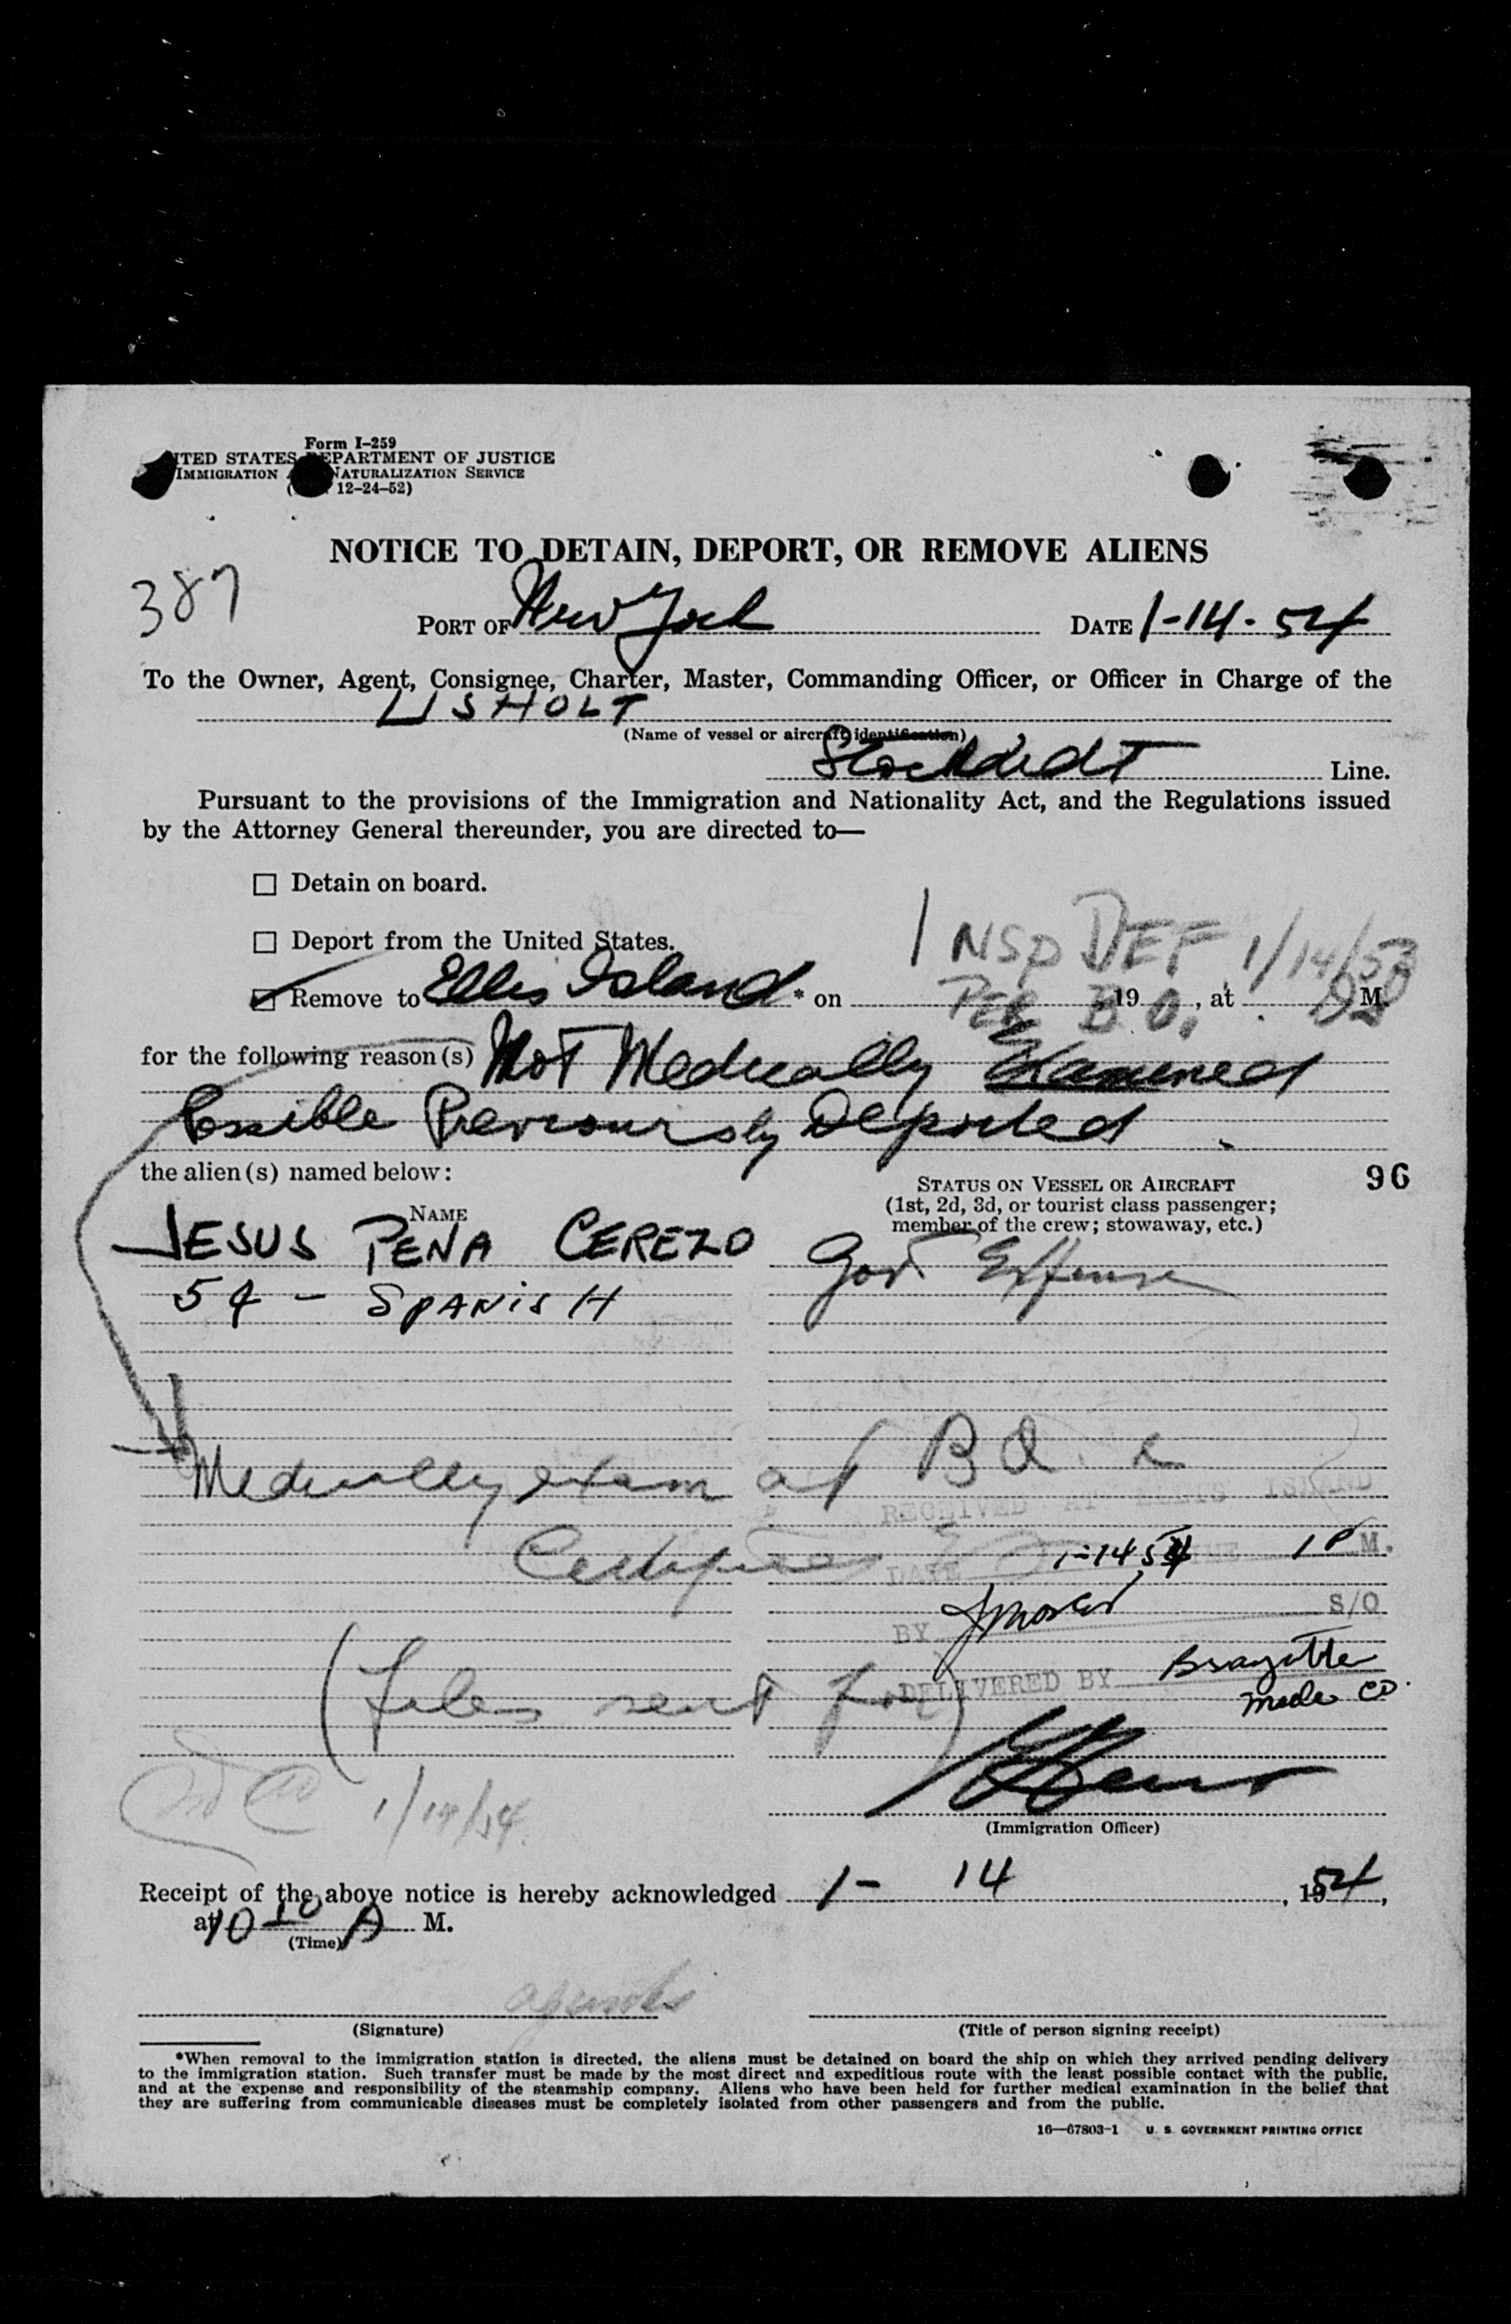 Form I-259
ITED STATES DEPARTMENT OF JUSTICE
IMMIGRATION NATURALIZATION SERVICE
( 12-24-52)
NOTICE TO DETAIN, DEPORT, OR REMOVE ALIENS
387
PORT OF New York DATE 1-14-54
To the Owner, Agent, Consignee, Charter, Master, Commanding Officer, or Officer in Charge of the
LISHOLT
(Name of vessel or aircraft identification)
Line.
Pursuant to the provisions of the Immigration and Nationality Act, and the Regulations issued
by the Attorney General thereunder, you are directed to—
☐ Detain on board.
☐ Deport from the United States.
INSP DEF 1/14/53
☑ Remove to Ellis Island * on , 19 , at M.
PER B O.
for the following reason(s) Not Medically Examined
Possible Previously Deported
the alien(s) named below:
96
NAME
STATUS ON VESSEL OR AIRCRAFT
(1st, 2d, 3d, or tourist class passenger;
member of the crew; stowaway, etc.)
JESUS PENA CEREZO
Gov. Expense
54 - SPANISH
Medically exam at B Q. &
RECEIVED AT ELLIS ISLAND
DATE 1-14 54 1 P M.
BY S/O
(Files sent for)
DELIVERED BY
1/14/54
(Immigration Officer)
Receipt of the above notice is hereby acknowledged 1- 14 , 1954,
at 10 10 A M.
(Time)
(Signature)
(Title of person signing receipt)
*When removal to the immigration station is directed, the aliens must be detained on board the ship on which they arrived pending delivery
to the immigration station. Such transfer must be made by the most direct and expeditious route with the least possible contact with the public,
and at the expense and responsibility of the steamship company. Aliens who have been held for further medical examination in the belief that
they are suffering from communicable diseases must be completely isolated from other passengers and from the public.
16—67803-1 U. S. GOVERNMENT PRINTING OFFICE